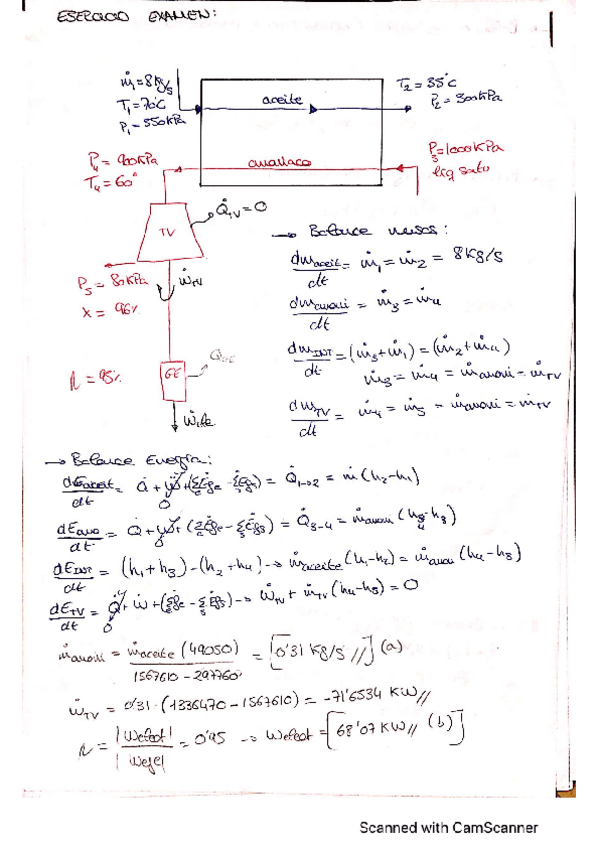 EJERCICIO EXAMEN:
ṁ₁=8Kg/s
T₁=70°C
P₁=550KPa
aceite
T₂=35°C
P₂=300KPa
P₄=900KPa
T₄=60°
amoniaco
P₃=1000KPa
liq satu
TV
Q̇TV=0
P₅=80KPa
X=96%
ẆTV
η=95%
GE
Q̇GE
Ẇele
→ Balance masas:
dmaceit/dt = ṁ₁=ṁ₂ = 8Kg/S
dmamoni/dt = ṁ₃=ṁ₄
dmINT/dt = (ṁ₃+ṁ₁) = (ṁ₂+ṁ₄)
ṁ₃=ṁ₄=ṁamoni=ṁTV
dmTV/dt = ṁ₄=ṁ₅=ṁamoni=ṁTV
→ Balance Energía:
dEaceit/dt = Q̇+Ẇ+(ΣĖge-ΣĖgs) = Q̇₁→₂ = ṁ(h₂-h₁)
0
dEamo/dt = Q̇+Ẇ+(ΣĖge-ΣĖgs) = Q̇₃-₄ = ṁamoni(h₄-h₃)
0
dEINT/dt = (h₁+h₃)-(h₂+h₄) → ṁaceite(h₁-h₂) = ṁamoni(h₄-h₃)
dETV/dt = Q̇+Ẇ+(ΣĖge-ΣĖgs) → ẆTV+ṁTV(h₄-h₅)=0
0
ṁamoni = ṁaceite(49050)/1567610-297760 = [0'31 Kg/S //] (a)
ẆTV = 0'31·(1336470-1567610) = -71'6534 KW//
η = |Wefect|/|Weje| = 0'95 → Wefect = [68'07 KW// (b)]
Scanned with CamScanner